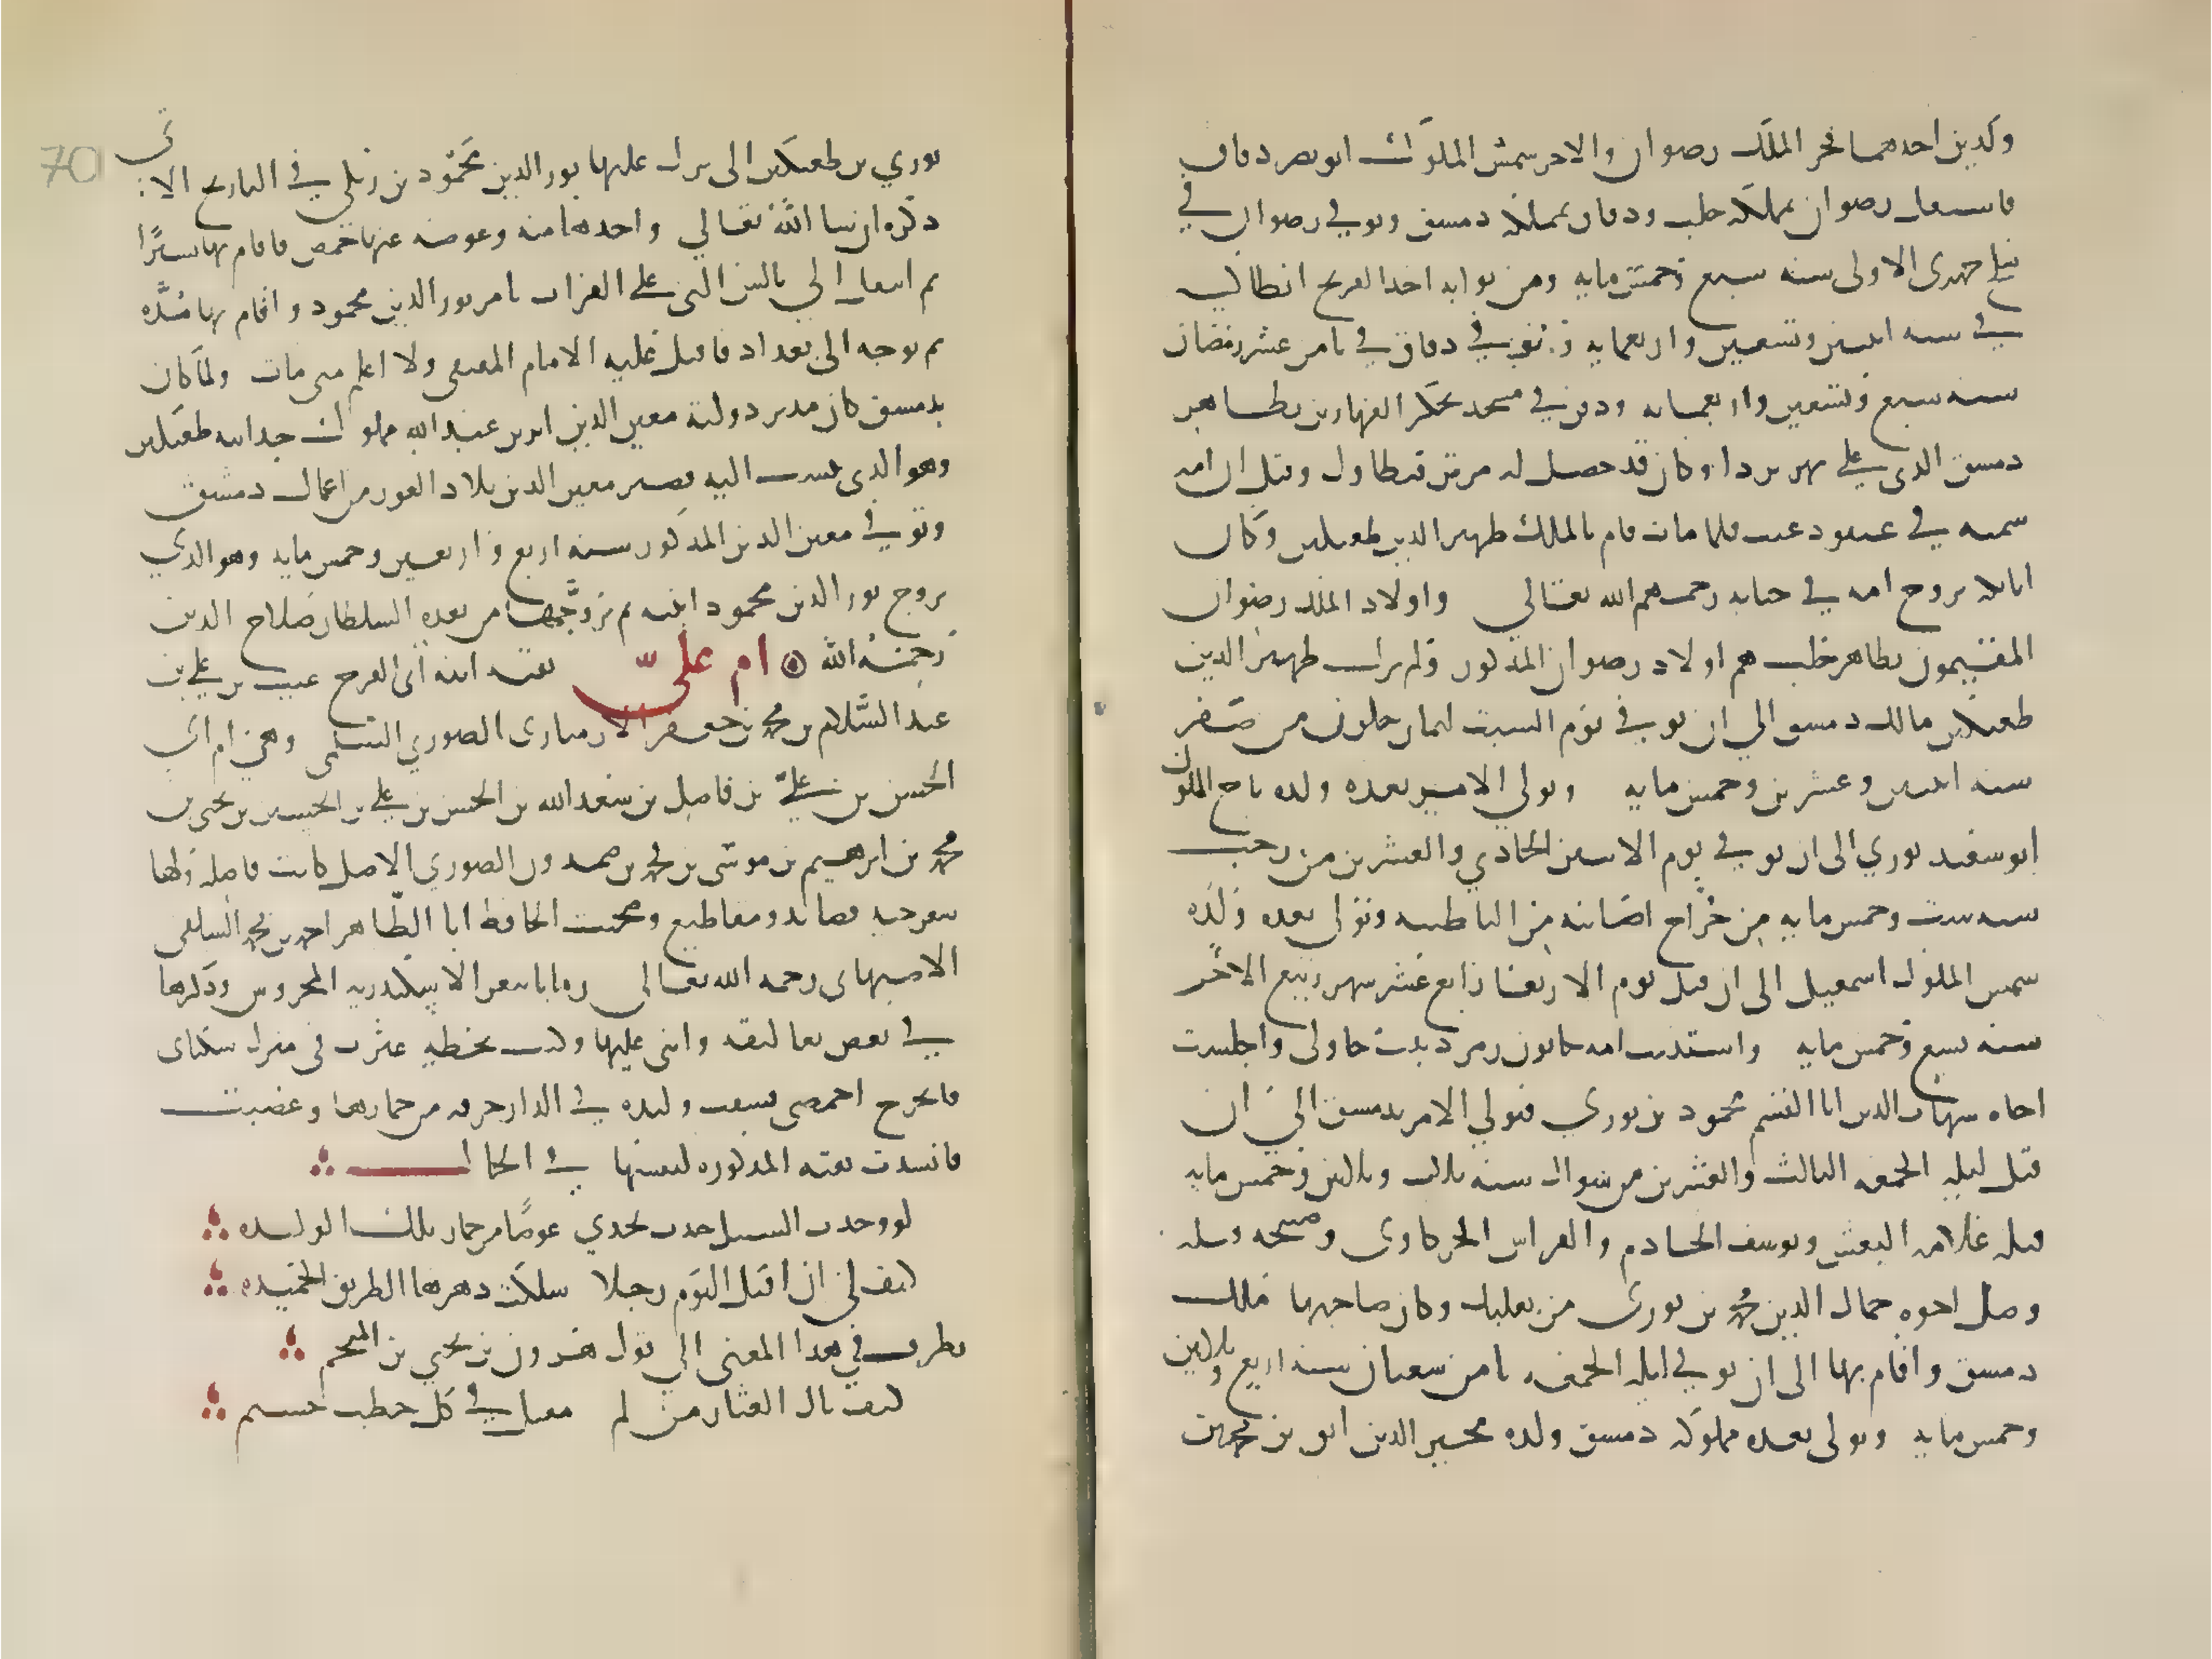 ولدين احدهما فخر الملك رضوان والاخر شمس الملوك ابو نصر دقاق
فاستقل رضوان بمملكة حلب ودقاق بمملكة دمشق وتوفي رضوان في
سلخ جمدى الاولى سنه سبع وخمس مايه ومن نوابه اخذ الفرنج انطاكيه
في سنه اثنين وتسعين واربعمايه وتوفي دقاق في ثامن عشر رمضان
سنه سبع وتسعين واربعمايه ودفن في مسجد بحكر الفهادين بظاهر
دمشق الذي علي نهر بردا وكان قد حصل له مرض تطاول وقيل ان امه
سمته في عنقود عنب فلما مات قام بالملك ظهير الدين طغتكين وكان
اتابكه تزوج امه في حياته رحمهم الله تعالي واولاد الملك رضوان
المقيمون بظاهر حلب هم اولاد رضوان المذكور ولم يزل ظهير الدين
طغتكين مالك دمشق الي ان توفي يوم السبت لثمان خلون من صفر
سنه اثنين وعشرين وخمس مايه وتولي الامر بعده ولده تاج الملوك
ابو سعيد بوري الى ان توفي يوم الاثنين الحادي والعشرين من رجب
سنه ست وخمس مايه من جراح اصابته من الباطنيه وتولى بعده ولده
شمس الملوك اسمعيل الى ان قتل يوم الاربعا رابع عشر شهر ربيع الاخر
سنه تسع وخمس مايه واستدنت امه خاتون زمرد بنت جاولى واجلست
اخاه شهاب الدين ابا القسم محمود بن بوري فتولي الامر بدمشق الي ان
قتل ليله الجمعه الثالث والعشرين من شوال سنه ثلاث وثلثين وخمس مايه
قتله غلامه البغش ويوسف الخادم والفراش الخركاوى وصبيحه قتله
وصل اخوه جمال الدين محمد بن بورى من بعلبك وكان صاحبها فملك
دمشق واقام بها الى ان توفي ليله الجمعه ثامن شعبان سنه اربع وثلاثين
وخمس مايه وتولى بعده مملكة دمشق ولده مجير الدين ابق بن محمد بن
70
بوري بن طغتكين الى نزل عليها نور الدين محمود بن زنكي في التاريخ الاتي
ذكره ان شا الله تعالي واخدها منه وعوضه عنها حمص فاقام بها يسيرا
ثم انتقل الي بالس التي علي الفرات بامر نور الدين محمود واقام بها مده
ثم توجه الى بغداد فاقبل عليه الامام المقتفي ولا اعلم متى مات ولما كان
بدمشق كان مدبر دولته معين الدين انر بن عبد الله مملوك جد ابيه طغتكين
وهو الذي ينسب اليه قصير معين الدين ببلاد الغور من اعمال دمشق
وتوفي معين الدين المذكور سنه اربع واربعين وخمس مايه وهو الذي
تزوج نور الدين محمود ابنته ثم تزوجها من بعده السلطان صلاح الدين
رحمه الله ام علي تقيه ابنه ابي الفرج غيث بن علي بن
عبد السلام بن محمد بن جعفر الارمنازى الصوري السلمي وهي ام ابي
الحسن بن علي بن فاضل بن سعد الله بن الحسن بن علي بن الحسين بن يحيى بن
محمد بن ابرهيم بن موسى بن محمد بن صمدون الصوري الاصل كانت فاضله ولها
شعر جيد قصائد ومقاطيع وصحبت الحافظ ابا الطاهر احمد بن محمد السلفي
الاصبهاني رحمه الله تعالى زمانا بثغر الاسكندريه المحروس وذكرها
في بعض تعاليقه واثنى عليها وكتب بخطه عثرت في منزل سكناى
فانجرح اخمصي فشقت وليده في الدار خرقه من خمارها وعصبت
فانشدت تقيه المذكوره لنفسها في الحال
لو وجدت السبيل جدت بخدي عوضا من خمار تلك الوليده
كيف لي ان اقبل اليوم رجلا سلكت دهرها الطريق الحميده
نظرت في هدا المعنى الي قول هرون بن يحيي بن المنجم
كيف نال العثار من لم يزل مقبلا في كل خطب جسيم